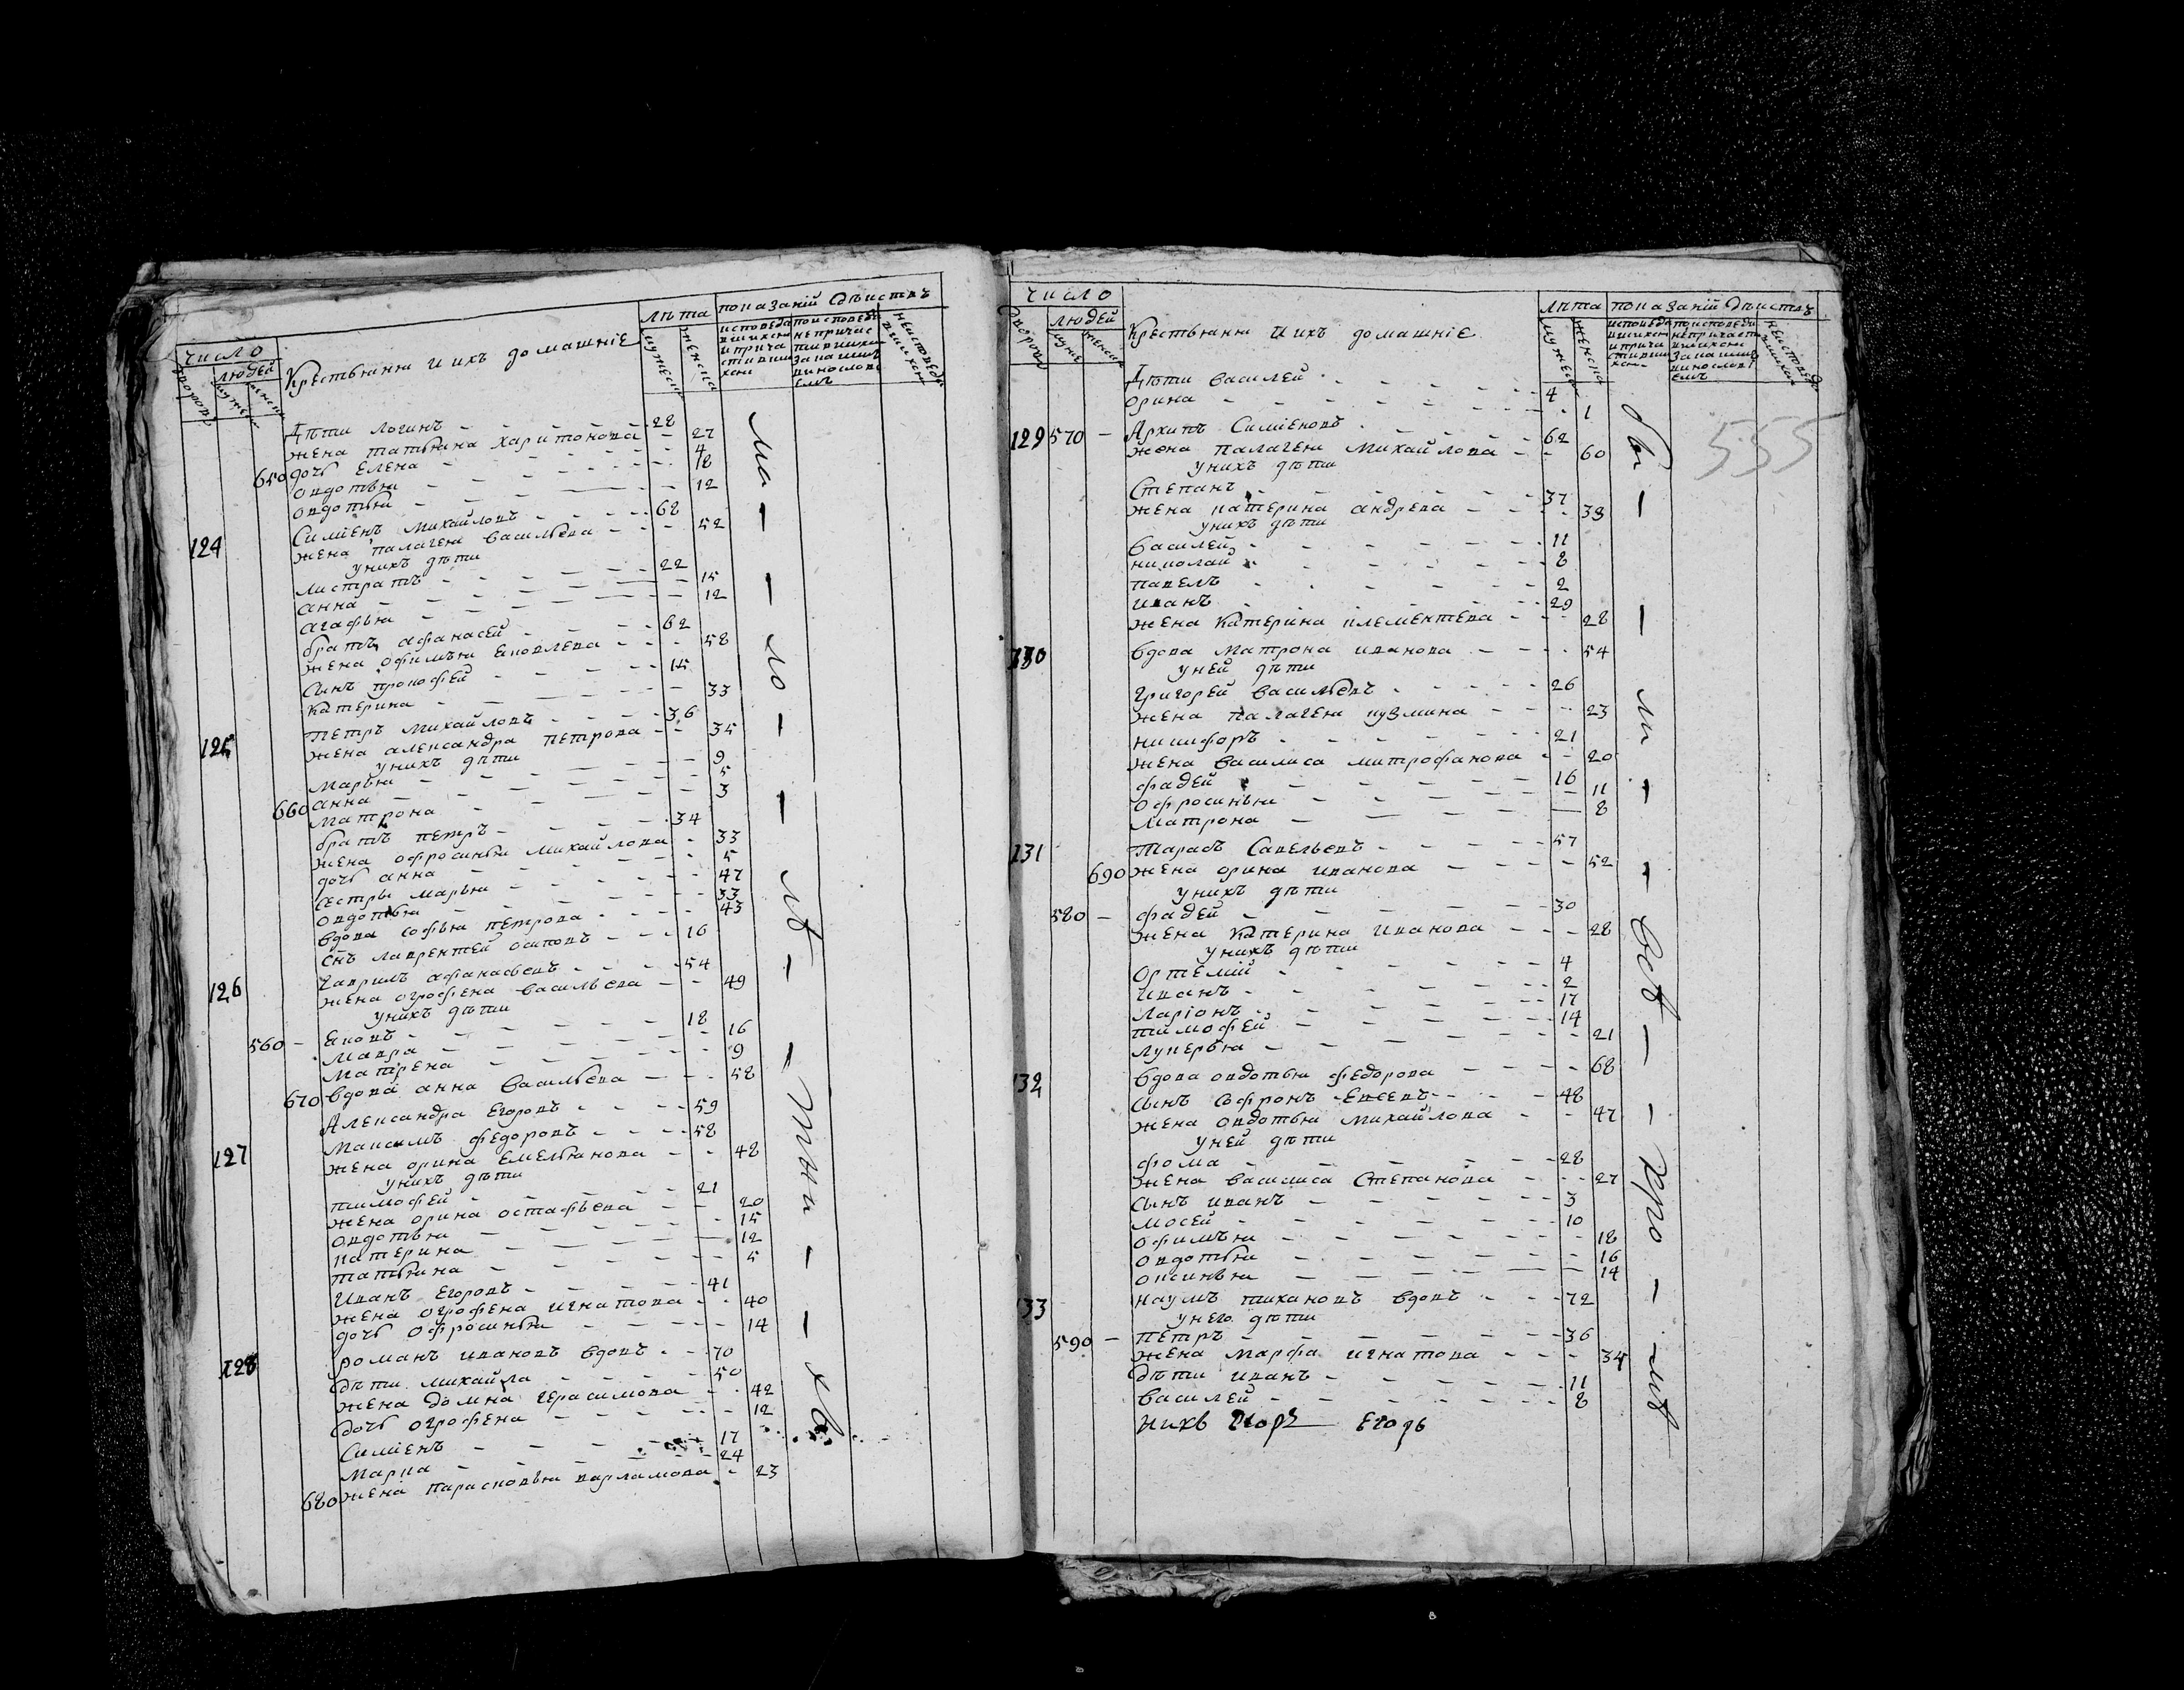 число
людей
дворовъ
мужес
женска
Крестьяня и ихъ домашніе
лѣта
мужеск
женска
показаній дѣиствъ
исповедавшихся и причастившихся
по исповеди не причастившихся за каким винословіемъ
неисповедавшихся
Дѣти логинъ 28
жена татьяна харитонова 27
650 дочь Елена 4
овдотья 18
овдотья 12
124 Симіенъ михайловъ 68
жена палагея васильева 52
у нихъ дѣти
листратъ 22
анна 15
агафья 12
братъ афанасей 62
жена офимья яковлева 58
сынъ прокофей 15
катерина 33
125 Петръ михайловъ 36
жена александра петрова 35
у нихъ дѣти
марья 9
660 анна 5
матрона 3
братъ петръ 34
жена офросинья михайлова 33
дочь анна 5
сестры марья 47
овдотья 33
вдова софья петрова 43
снъ лаврентей осиповъ 16
126 Гаврилъ афанасьевъ 54
жена огрофена васильева 49
у нихъ дѣти
560 яковъ 18
мавра 16
матрена 9
670 вдова анна васильева 58
Александра Егоровъ 59
127 Максимъ федоровъ 58
жена орина емельянова 48
у нихъ дѣти
тимофей 21
жена орина остафьева 20
овдотья 15
катерина 12
татьяна 5
Иванъ Егоровъ 41
жена огрофена игнатова 40
дочь офросинья 14
128 романъ ивановъ вдовъ 70
дѣти михайла 50
жена домна герасимова 42
дочь огрофена 12
Симіенъ 17
марка 24
680 жена парасковья варламова 23
число
людей
дворовъ
мужес
женска
Крестьяня и ихъ домашніе
лѣта
мужеск
женска
показаній дѣиствъ
исповедавшихся и причастившихся
по исповеди не причастившихся за каким винословіемъ
неисповедавшихся
555
Дѣти василей 4
орина 1
129 570 Архипъ Симіеновъ 62
жена палагея михайлова 60
у нихъ дѣти
Степанъ 37
жена катерина андрева 38
у нихъ дѣти
василей 11
николай 8
павелъ 2
иванъ 29
жена катерина клементева 28
130 вдова матрона иванова 54
у ней дѣти
григорей васильевъ 26
жена палагея кузмина 23
никифоръ 21
жена василиса митрофанова 20
фадей 16
офросинья 11
матрона 8
131 Тарасъ Савельевъ 57
690 жена орина иванова 52
у нихъ дѣти
580 фадей 30
жена катерина иванова 28
у нихъ дѣти
ортемій 4
иванъ 2
ларіонъ 17
тимофей 14
лукерья 21
132 вдова овдотья федорова 68
сынъ софронъ евсевъ 48
жена овдотья михайлова 47
у ней дѣти
фома 28
жена василиса степанова 27
сынъ иванъ 3
мосей 10
офимья 18
овдотья 16
оксинья 14
133 наумъ тихановъ вдовъ 72
у него дѣти
590 петръ 36
жена марфа игнатова 34
дѣти иванъ 11
василей 8